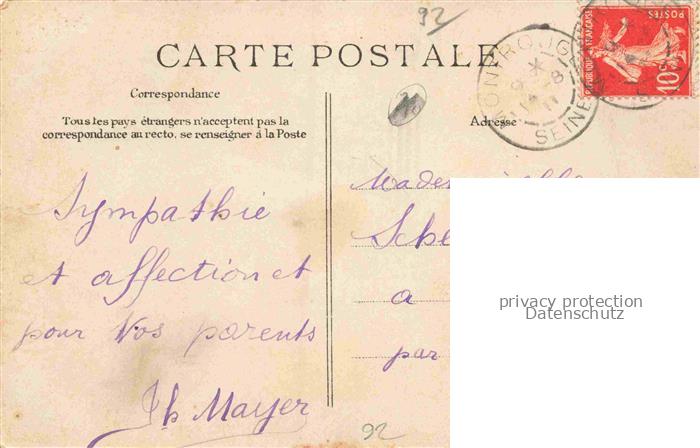 92
CARTE POSTALE
Correspondance
Tous les pays étrangers n'acceptent pas la
correspondance au recto, se renseigner à la Poste
Sympathie
et affection et
pour Vos parents
Th Mayer
92
Adresse
Mademoiselle
Sche
a
par
MONTROUGE
SEINE
REPUBLIQUE FRANÇAISE
POSTES
10c
privacy protection
Datenschutz